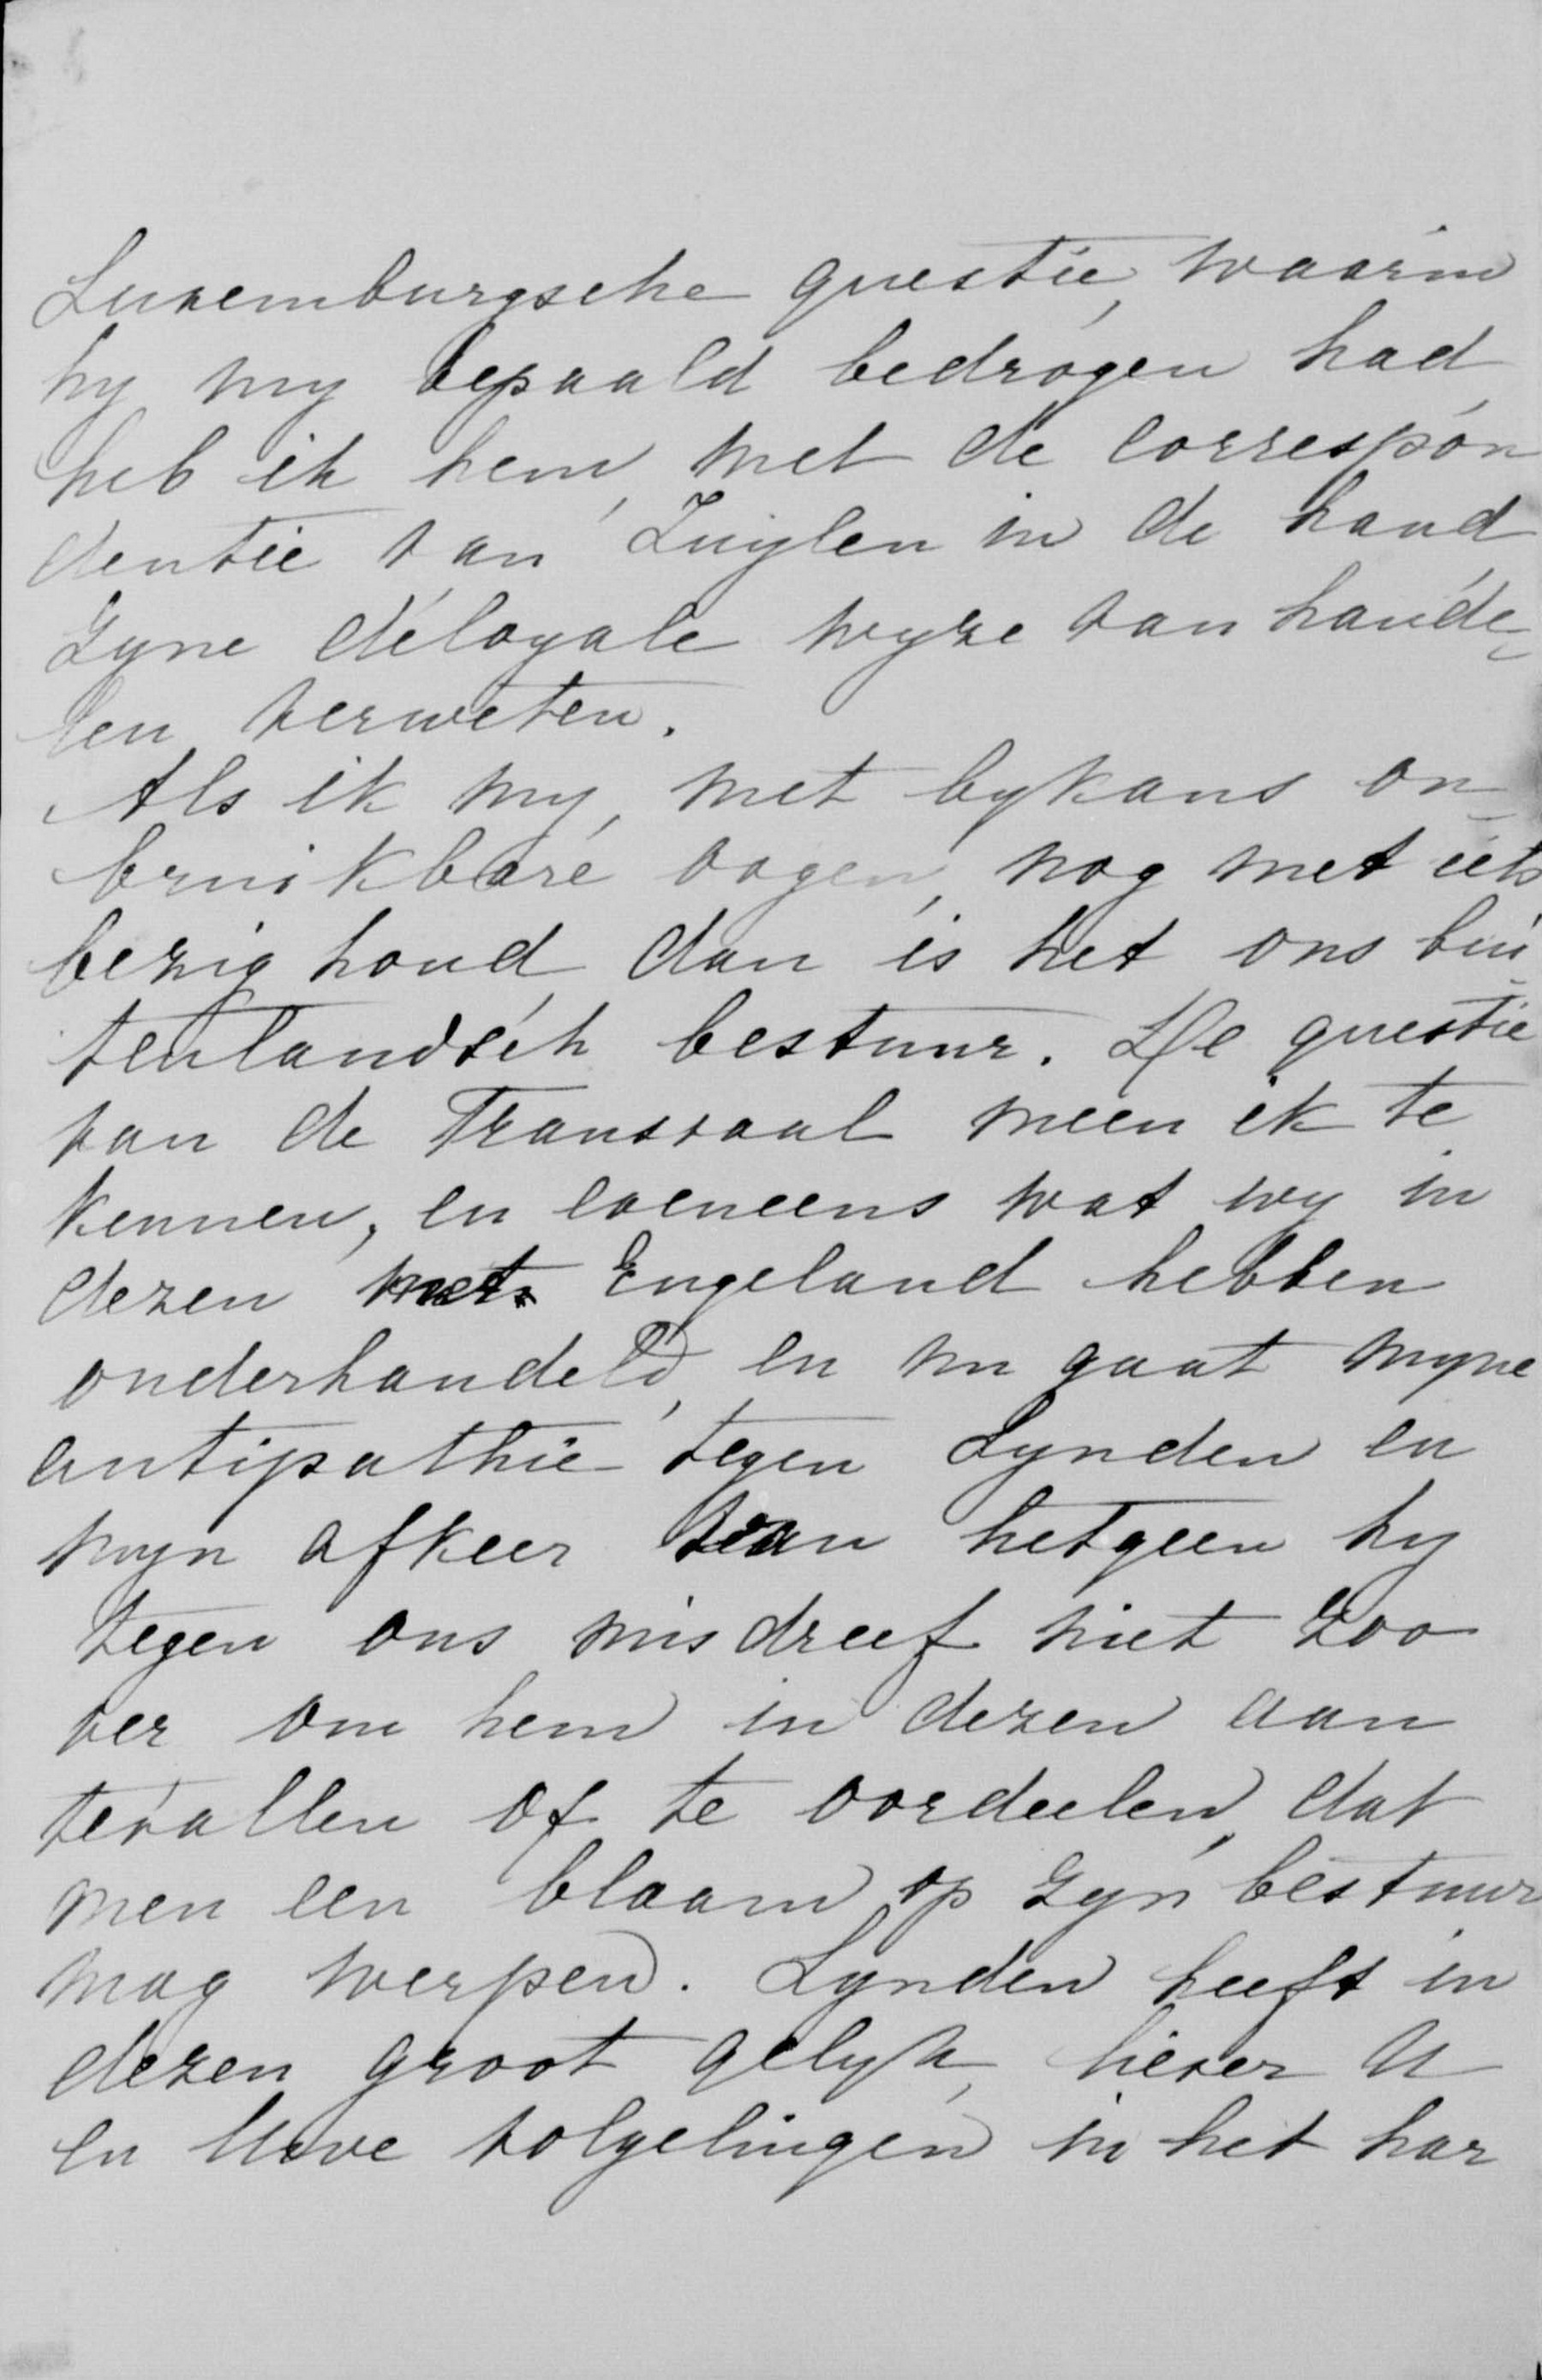 Luxemburgsche questie, waarin
hy my bepaald bedrogen had
heb ik hem, met de correspon
dentie van Zuylen in de hand
zyne déloyale wyze van hande-
len verweten.
Als ik my, met bykans on-
bruikbare oogen, nog met iets
bezig houd dan is het ons bui-
tenlandsch bestuur. De questie
van de Transvaal meen ik te
kennen, en eveneens wat wy in
dezen met Engeland hebben
onderhandeld, en nu gaat myne
antipathie tegen Lynden en
myn afkeer van hetgeen hy
tegen ons misdreef niet zoo
ver om hem in dezen aan
tevallen of te oordeelen, dat
men een blaam op zyn bestuur
mag werpen. Lynden heeft in
dezen groot gelyk, liever U
en Uwe volgelingen in het har